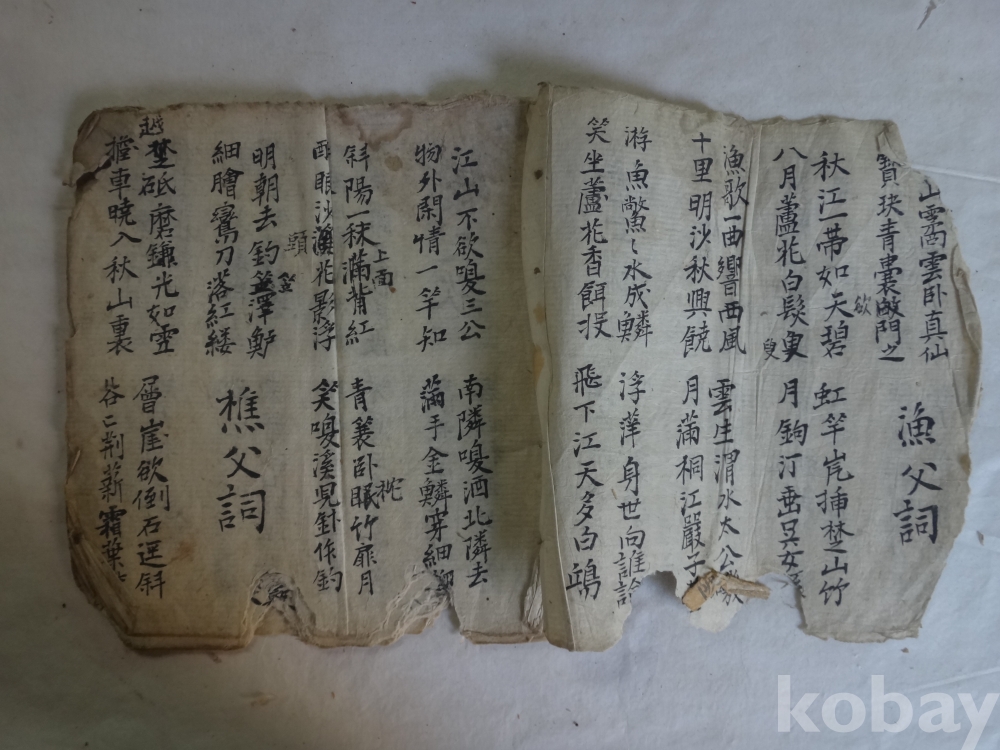 山雲卧真仙
寶玦青囊啟門之 漁父詞
欲
秋江一帶如天碧 虹竿岂揷楚山竹
八月蘆花白髮叟 月鉤汀垂吳女
叟
漁歌一曲響西風 雲生渭水太公
十里明沙秋興饒 月滿桐江嚴子
游魚水成鱗 浮萍身世向誰論
笑坐蘆花香餌投 飛下江天多白鷗
江山不欲嗅三公 南隣嗅酒北隣去
物外閑情一竿知 滿手金鱗穿細柳
上面
斜陽一秣滿背紅 青蓑卧眠竹扉月
醉眼沙溪花影浮 笑嗅溪兒針作釣
明朝去釣笠澤鱸
細膾鸞刀落紅縷 樵父詞
越楚砥磨鎌光如雪 層崖欲倒石逕斜
擔車曉入秋山裏 薪霜葉
kobay